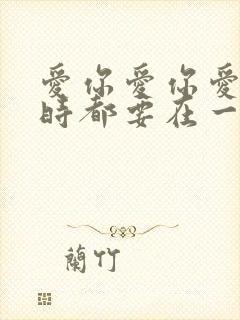 愛你愛你愛
時都要在一
蘭竹